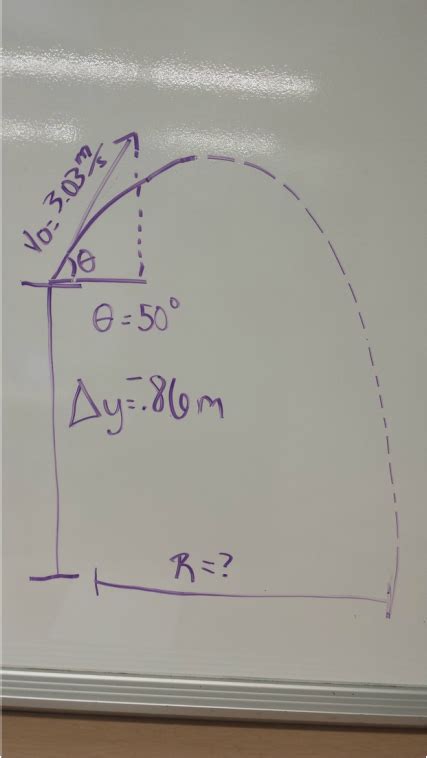 V0=3.03m/s
θ
θ=50°
Δy=-.86m
R=?